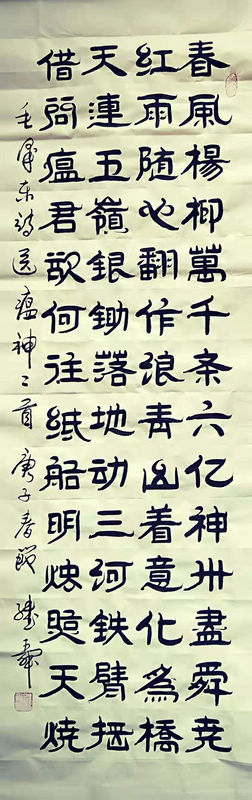 春風楊柳萬千条六亿神州盡舜尭
紅雨随心翻作浪青山着意化為橋
天連五嶺銀鋤落地动三河铁臂摇
借问瘟君欲何往纸船明烛照天烧
毛泽东诗送瘟神二首 庚子春節